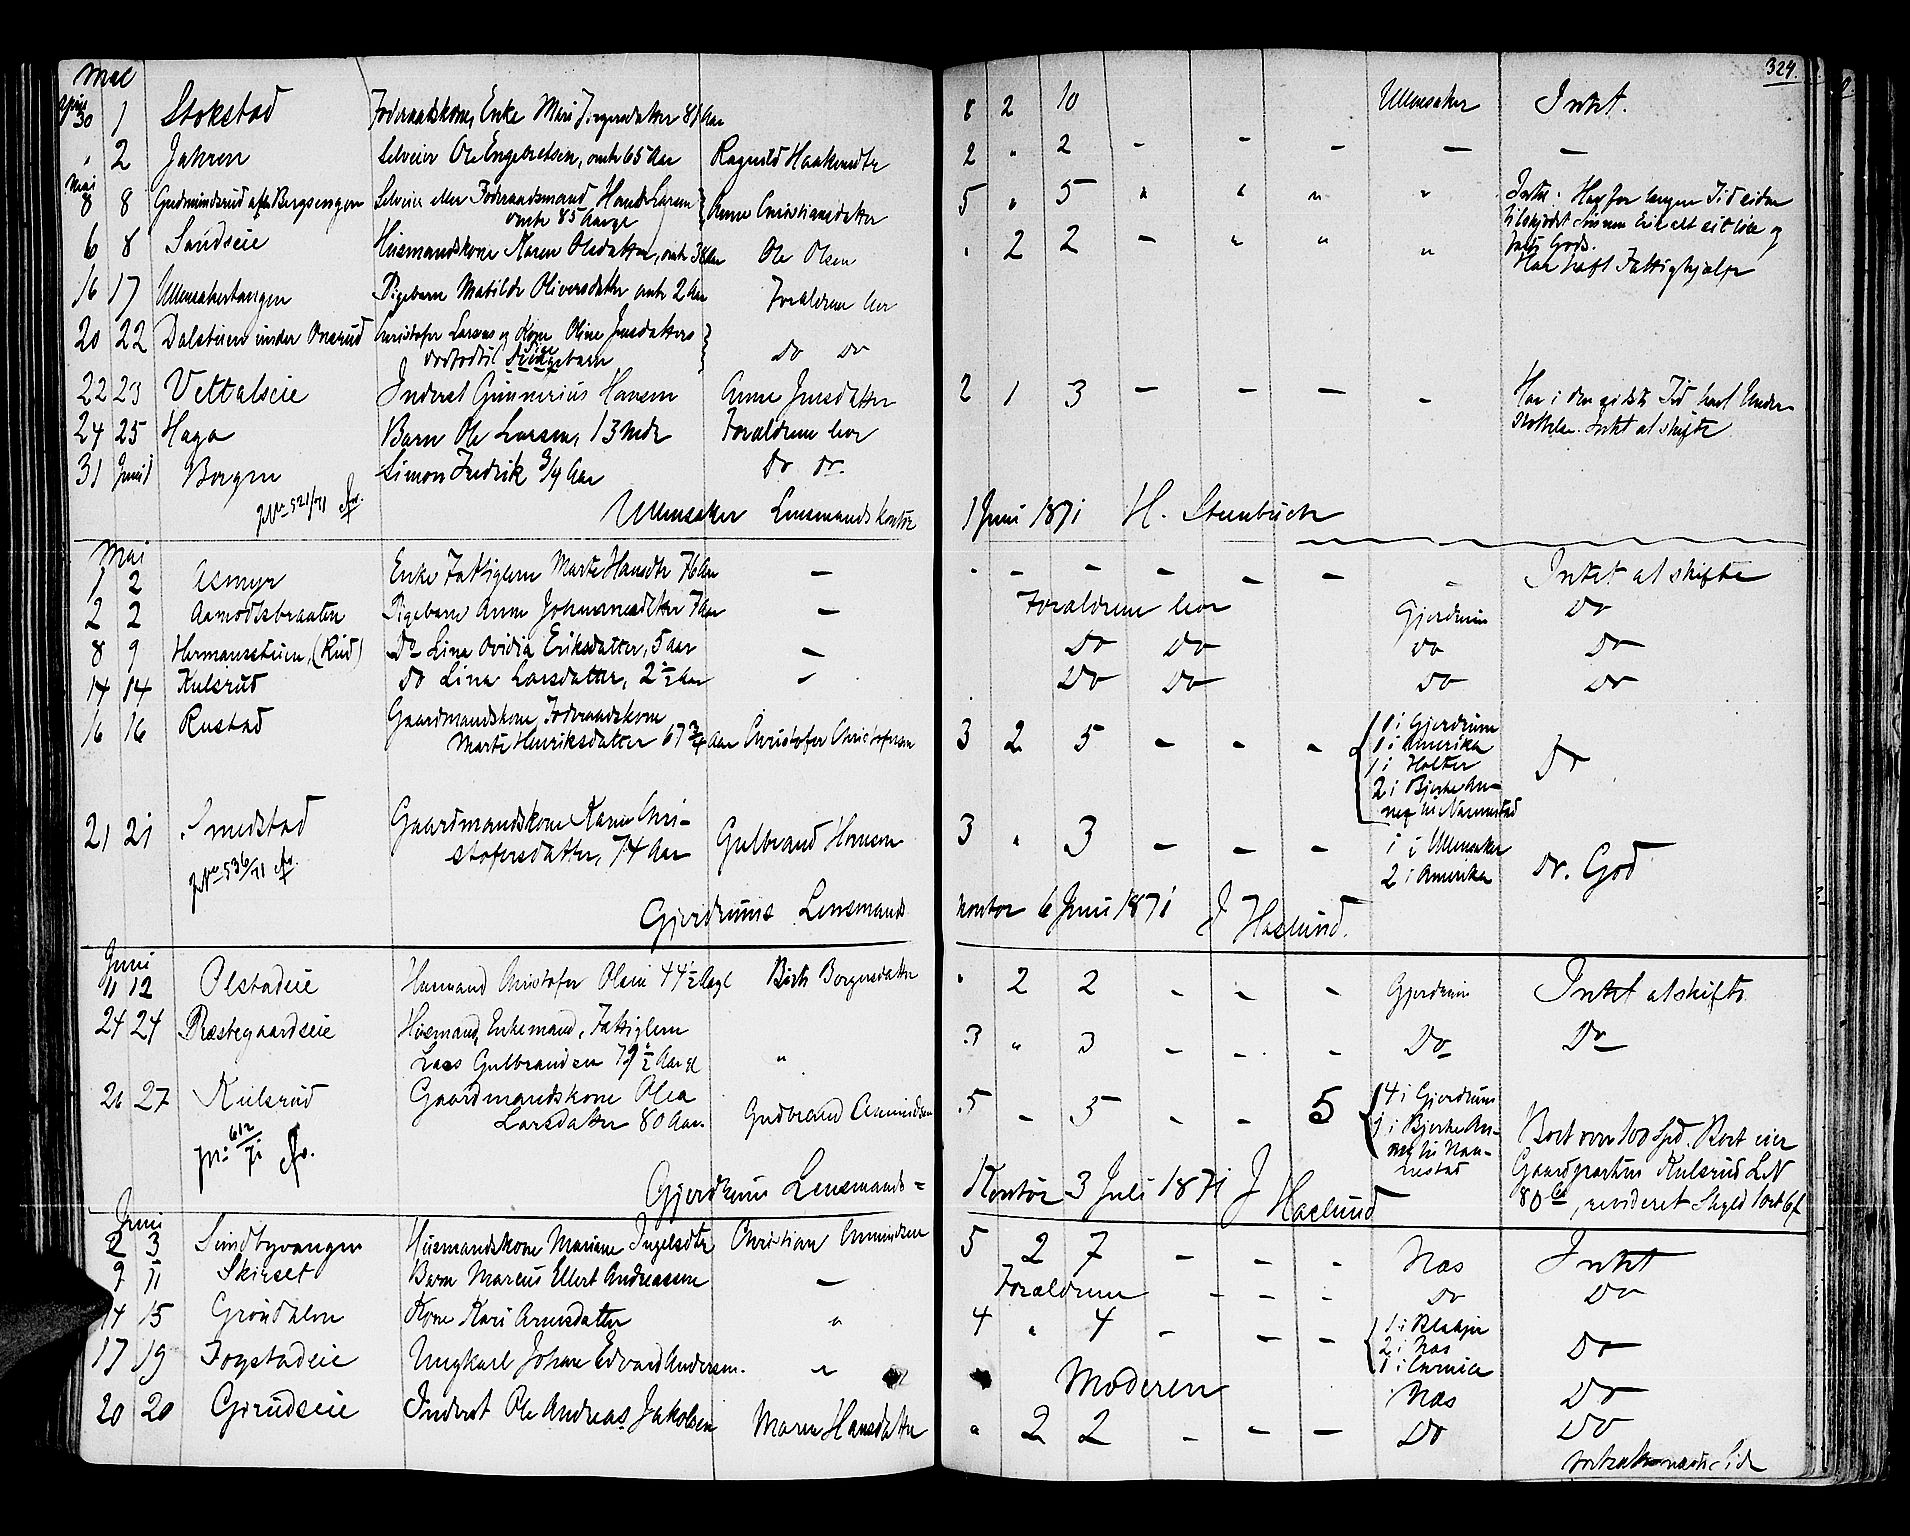 324.
Mai
April 30 1 Stokstad Foderaadskone, Enke Mari Jörgensdatter 81 Aar 8 2 10 Ullensaker Intet.
" 2 Jahren Selveier Ole Engebretsen, omtr 65 Aar Ragnild Haakensdtr 2 " 2 - - - - -
Mai
8 8 Gudmundsrud Bergsengen Selveier eller Foderaadsmand Hans Larsen Anne Christiansdatter 5 " 5 " " " "
omtr 85 Aar
Har for længere Tid siden
6 8 Sandseie Huusmandskone Karen Olsdatter, omtr 38 Aar Ole Olsen " 2 2 - " " "
Gods.
Har havt Fattighjælp
16 17 Ullensakertangen Pigebarn Matilde Oliversdatter omtr 2 Aar Forældrene lever
20 22 Dalstuen under Onsrud Christofer Larsens og Kone Oline Jensdatters
dødfødt Pigebarn Do Do
22 23 Vettalseie Inderst Gunnerius Hansen Anne Jensdatter 2 1 3 - - - - Har i den sidste Tid havt Under-
støttelse. Intet at skifte
24 25 Haga Barn Ole Larsen, 13 Mdr Forældrene lever
31 Juni 1 Borgen Simon Fredrik 3/4 Aar Do Do.
JNr 521/71
Ullensaker Lensmandskontor 1 Juni 1871 H. Steenbuch
Mai
1 2 Asmyr Enke Fattiglem Marte Hansdtr 76 Aar - " - - - - - - Intet at skifte
2 2 Aamodtsbraaten Pigebarn Anne Johannesdatter 7 Aar - Forældrene lever Gjerdrum Do
8 9 Hermanstuen, (Rud) Do Lina Ovidia Eriksdatter, 5 Aar - Do Do Do Do
14 14 Kulsrud Do Lina Larsdatter, 2 1/2 Aar - Do Do Do Do
16 16 Rustad Gaardmandskone Foderaadskone
Marte Henriksdatter 67 3/4 Aar Christofer Christofersen 3 2 5 - - - 1 i Gjerdrum
1 i Amerika
1 i Holter
2 i Bjerke An-
nex til Nannestad
Do
21 21 Smedstad Gaardmandskone Karen Chri-
stofersdatter, 74 Aar Gulbrand Hansen 3 " 3 - - - 1 i Ullensaker
2 i Amerika
Do. God
JNr 536/71
Gjerdrums Lensmands kontor 6 Juni 1871 J Haslund.
Juni
11 12 Olstadeie Husmand Christofer Olsen 44 1/2 Aar gl Berte Borgersdatter " 2 2 - - - Gjerdrum Intet at skifte
24 24 Præstegaardseie Husmand, Enkemand, Fattiglem
Lars Gulbrandsen 79 1/2 Aar gl " 3 " 3 - - - Do Do
26 27 Kulsrud Gaardmandskone Olea
Larsdatter 80 Aar Gudbrand Amundsen 5 - 5 - - 5 4 i Gjerdrum
1 i Bjerke An-
nex til Nan-
nestad
Boet over 100 Spd. Boet eier
Gaardparten Kulsrud L.N
80, revideret Skyld
JNr 612/71
Gjerdrum Lensmands= Kontor 3 Juli 1871 J Haslund
Juni
2 3 Sundbyvangen Huusmandskone Mariane Ingelsdtr Christian Amundsen 5 2 7 - - - Næs Intet
9 11 Skirset Barn Marcus Ellert Andreassen - Forældrene - - - Do Do
14 15 Gröndalen Kone Kari Arnesdatter " 4 " 4 - - - 1 i Blakjer
2 i Næs
1 i
Do
17 19 Fogstadeie Ungkarl Johan Edvard Andersen. " Moderen Næs Do
20 20 Gjrudseie Inderst Ole Andreas Jakobsen Maren Hansdatter " 2 2 - - - Do Do